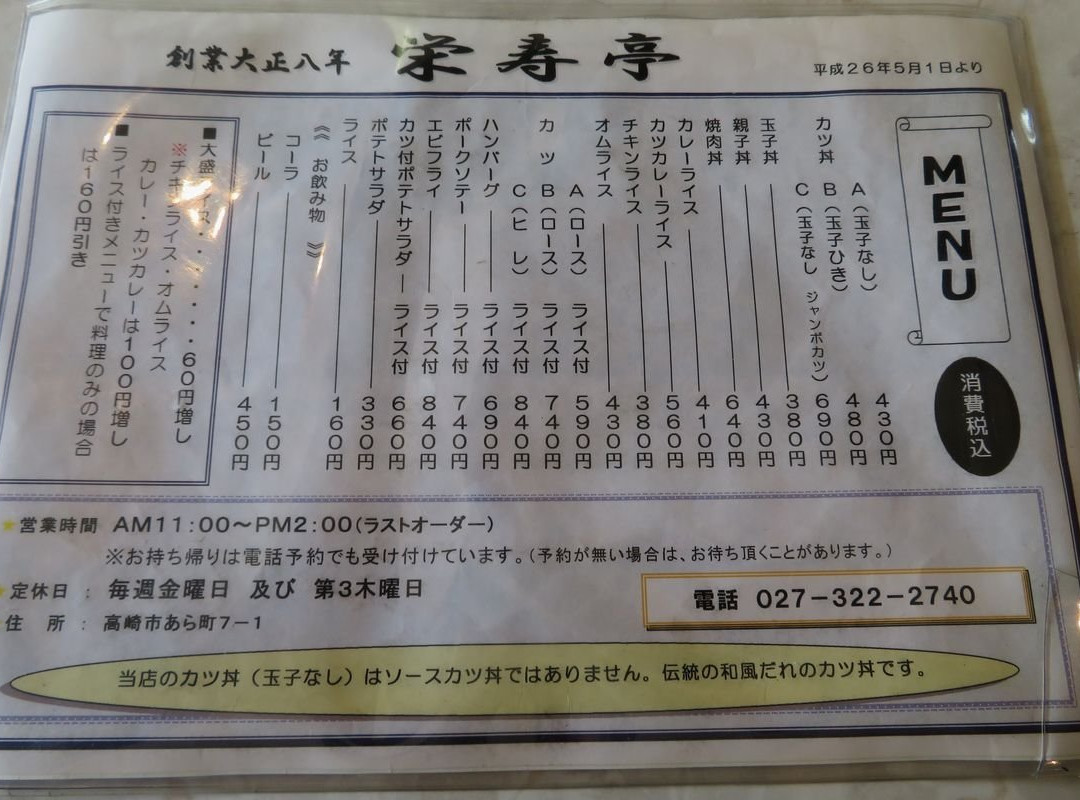 創業大正八年 栄寿亭
平成26年5月1日より
MENU
消費税込
カツ丼 A(玉子なし) 430円
B(玉子ひき) 480円
C(玉子なし ジャンボカツ) 690円
玉子丼 380円
親子丼 430円
焼肉丼 640円
カレーライス 410円
カツカレーライス 560円
チキンライス 380円
オムライス 430円
カツ A(ロース) ライス付 590円
B(ロース) ライス付 740円
C(ヒレ) ライス付 840円
ハンバーグ ライス付 690円
ポークソテー ライス付 740円
エビフライ ライス付 840円
カツ付ポテトサラダ ライス付 660円
ポテトサラダ 330円
ライス 160円
《 お飲み物 》
コーラ 150円
ビール 450円
■大盛ライス・・・・・・60円増し
※チキンライス・オムライス
カレー・カツカレーは100円増し
■ライス付きメニューで料理のみの場合
は160円引き
★営業時間 AM11:00～PM2:00(ラストオーダー)
※お持ち帰りは電話予約でも受け付けています。(予約が無い場合は、お待ち頂くことがあります。)
★定休日 : 毎週金曜日 及び 第3木曜日
住 所 : 高崎市あら町7－1
電話 027－322－2740
当店のカツ丼(玉子なし)はソースカツ丼ではありません。伝統の和風だれのカツ丼です。